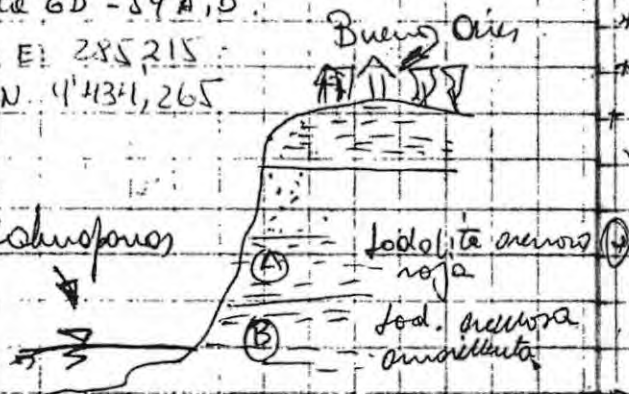 GD - 59 A, B.
E: 285,215
N. 4'434,265
Buenos Aires
A
lodolita arenosa
roja
B
lod. arenosa
amarillenta